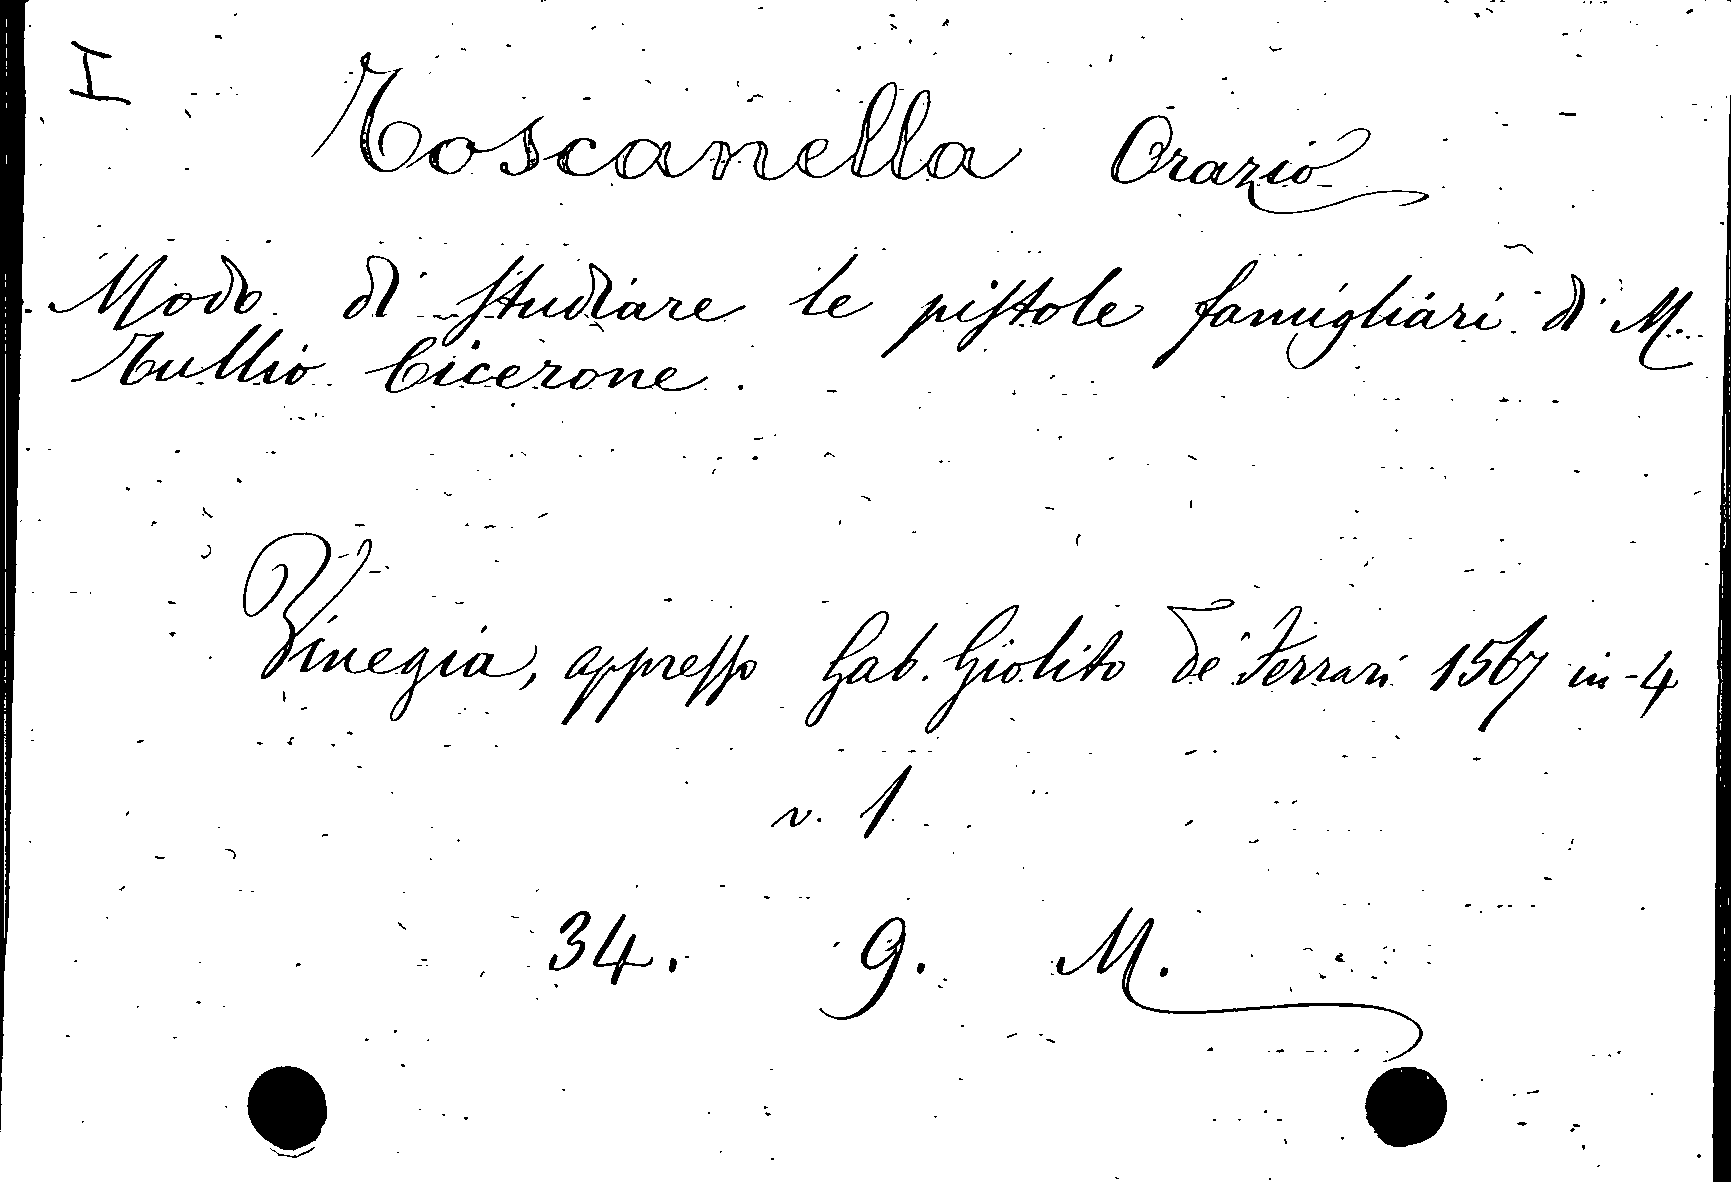 I
Toscanella Orazio
Modo di studiare le pistole famigliari di M.
Tullio Cicerone.
Vinegia, appresso Gab. Giolito de' Ferrari 1567 in-4
v. 1
34. 9. M.